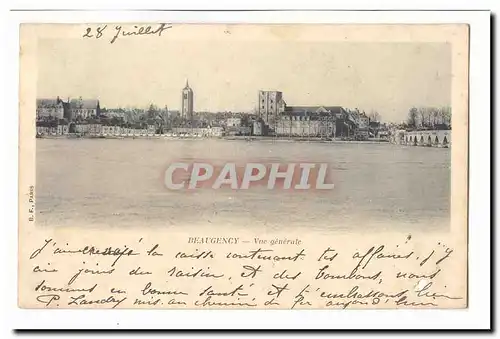 28 Juillet
CPARAMA
B. F., PARIS
BEAUGENCY — Vue générale
J'ai la caisse contenant tes affaires, j'y
ai joins du raisin et des bonbons, nous
sommes en bonne santé et t'embrassons bien
P. Landry mis au chemin de fer aujourd'hui